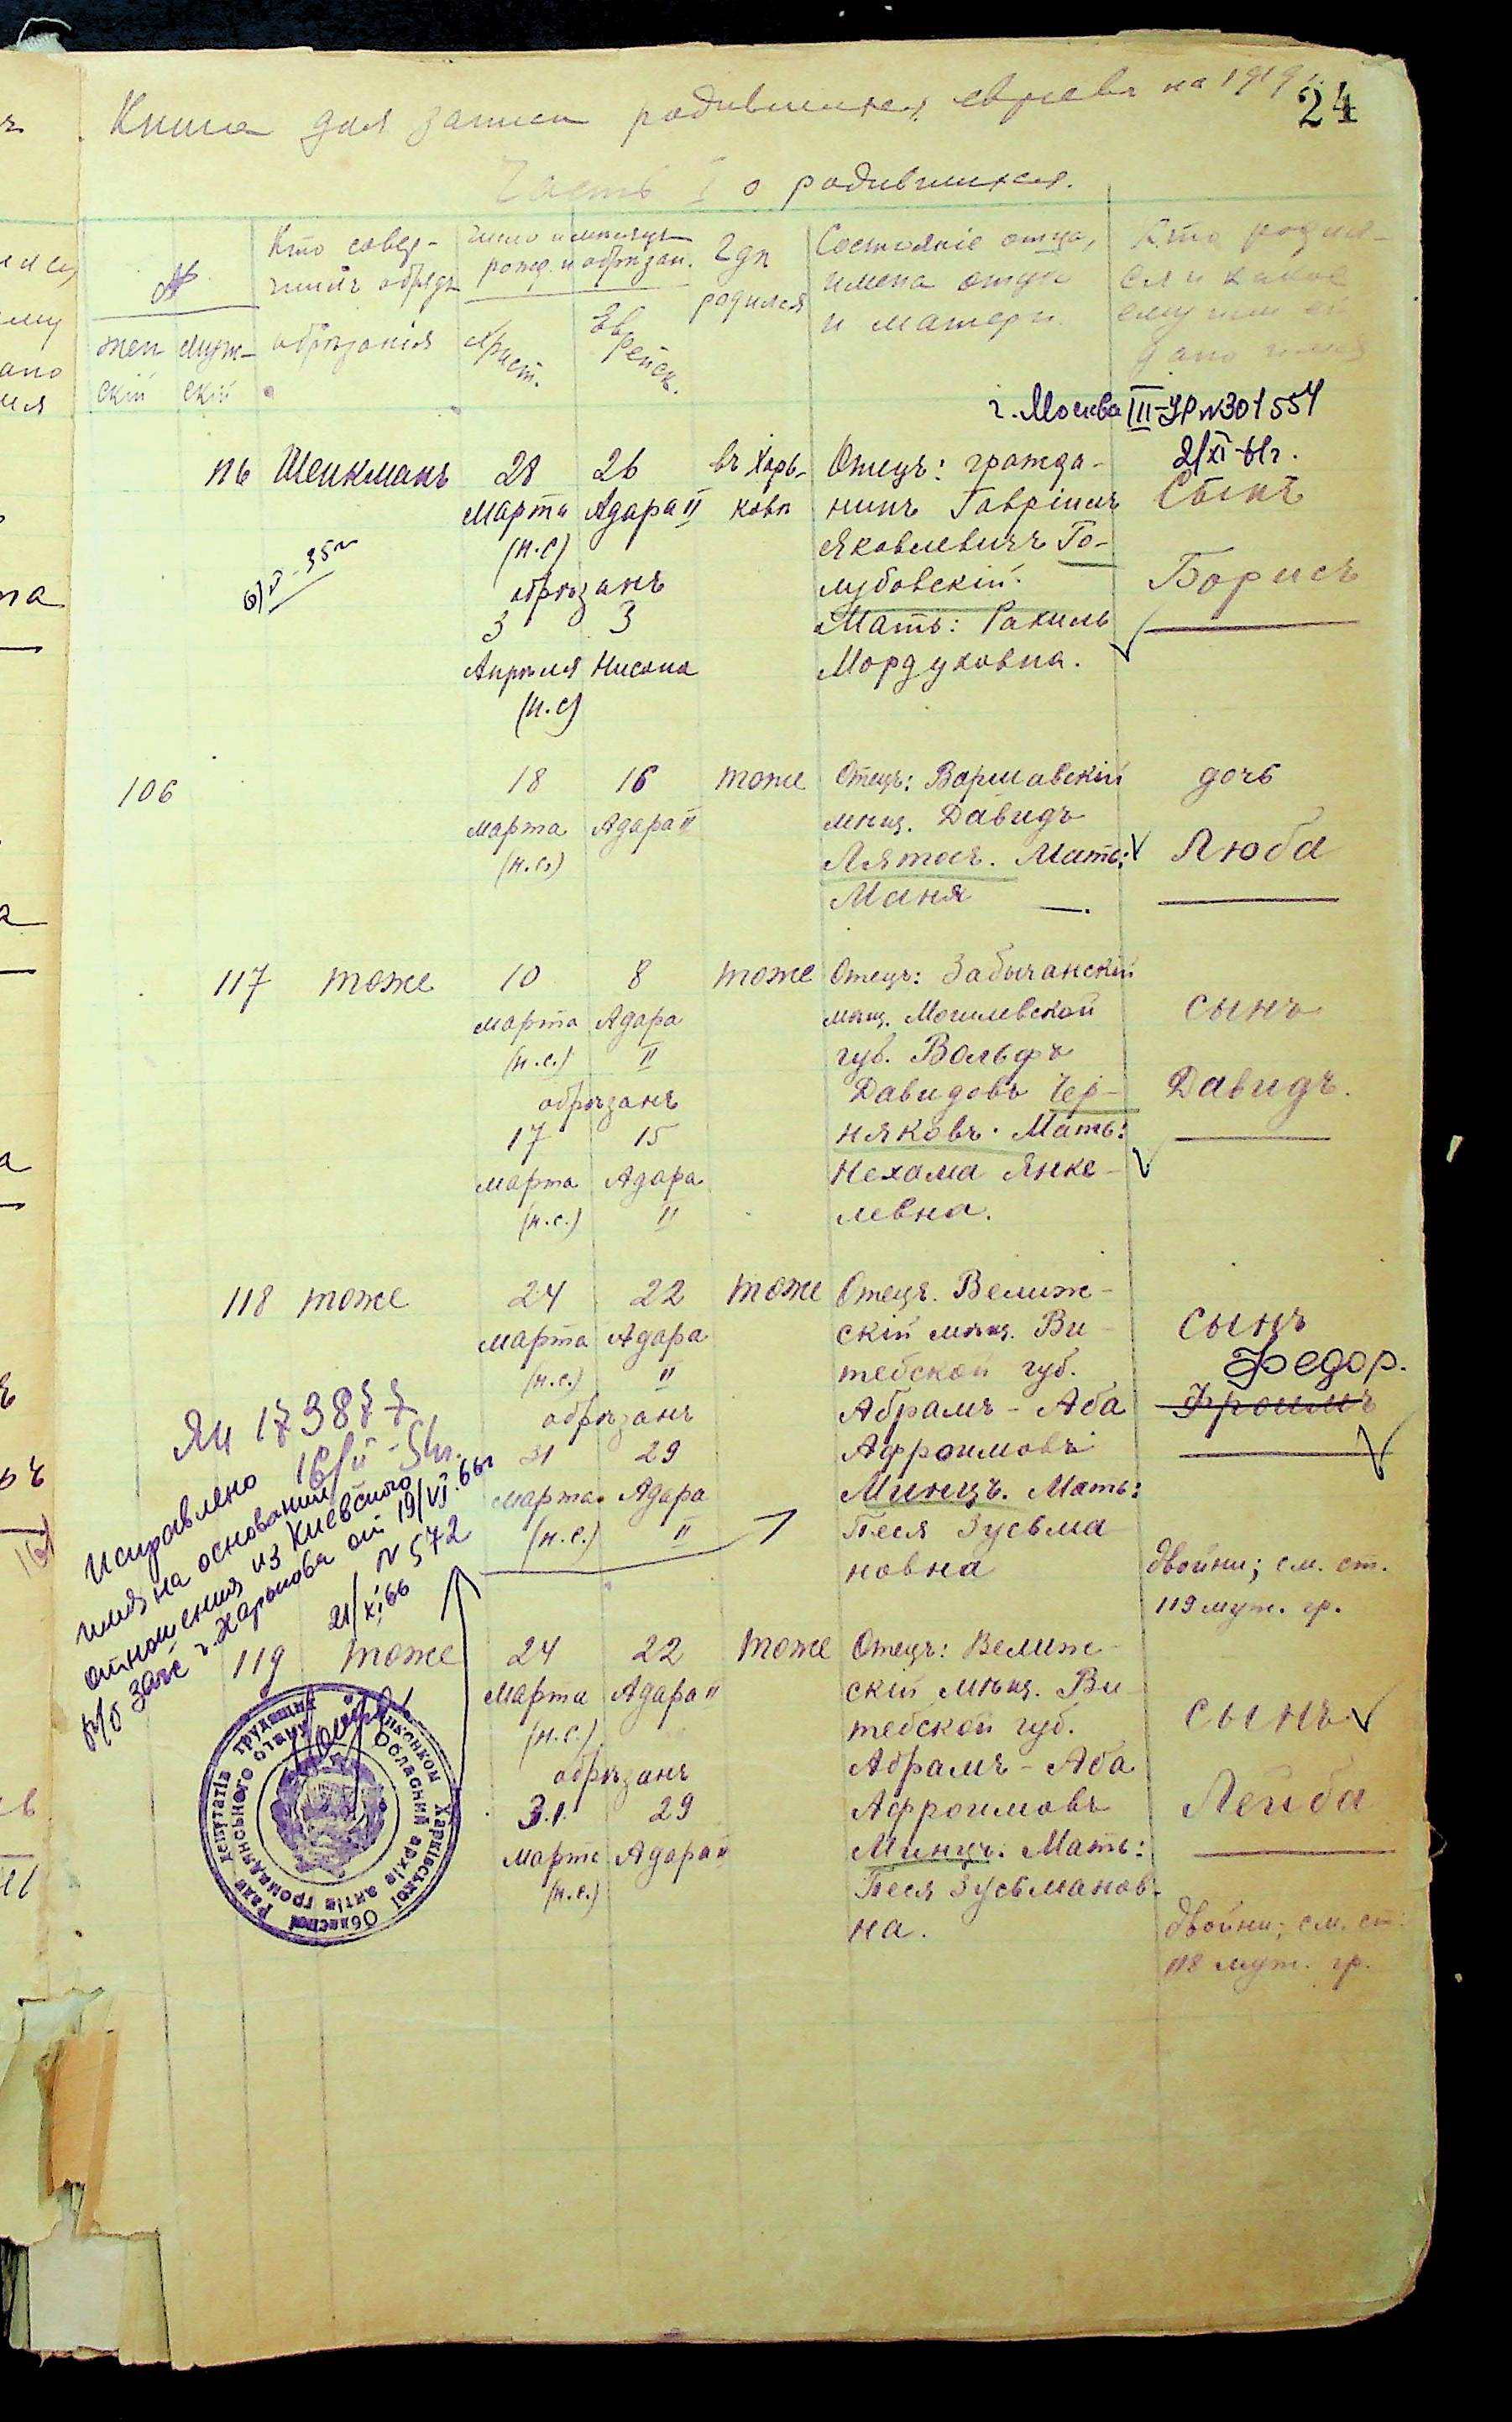 Книга для записи родившихся евреевъ на 1919 г.
24
Часть I о родившихся.
№
женскій
мужскій
Кто совершилъ обрядъ
обрѣзанія
Число и мѣсяцъ
рожд. и обрѣзан.
Христ.
Еврейск.
Гдѣ
родился
Состояніе отца,
имена отца
и матери.
Кто родил-
ся и какое
ему или ей
дано имя
г. Москва III-УР №301554
2/XI-61г.
116 Шенкманъ 28 26 въ Харь- Отецъ: гражда-
Марта Адара II ковѣ нинъ Гавріилъ Сынъ
(н.с) Яковлевичъ Го-
обрѣзанъ лубовскій. Борисъ
3 3 Мать: Рахиль
Апрѣля Нисана Мордуховна.
(н.с)
106 18 16 тоже Отецъ: Варшавскій дочь
Марта Адара II мѣщ. Давидъ
(н.с.) Лятасъ. Мать: Люба
Маня —.
117 тоже 10 8 тоже Отецъ: Забычанскій
марта Адара мѣщ. Могилевской сынъ
(н.с.) II губ. Вольфъ
обрѣзанъ Давидовъ Чер- Давидъ.
17 15 няковъ. Мать:
марта Адара Нехама Янке-
(н.с.) II левна.
118 тоже 24 22 тоже Отецъ. Велиж-
марта Адара скій мѣщ. Ви- сынъ
(н.с.) II тебской губ. Федор.
обрѣзанъ Абрамъ-Аба Фроимъ
31 29 Афроимовъ
марта Адара Минцъ. Мать:
(н.с.) II Песя Зусьма
новна
двойни; см. ст.
119 муж. гр.
Исправлено
имя на основании
отношения из Киевского
р/б загс г. Харькова от 19/VI.66г
№ 572
21/XI 66
119 тоже 24 22 тоже Отецъ: Велиж-
Марта Адара II скій мѣщ. Ви
(н.с.) тебской губ. сынъ
обрѣзанъ Абрамъ-Аба
31. 29 Афроимовъ Лейба
Марта Адара II Минцъ. Мать:
(н.с.) Песя Зусьманов-
на.
двойни; см. ст.
118 муж. гр.
Харківської Обласної Ради депутатів трудящих
Обласний архів актів громадянського стану